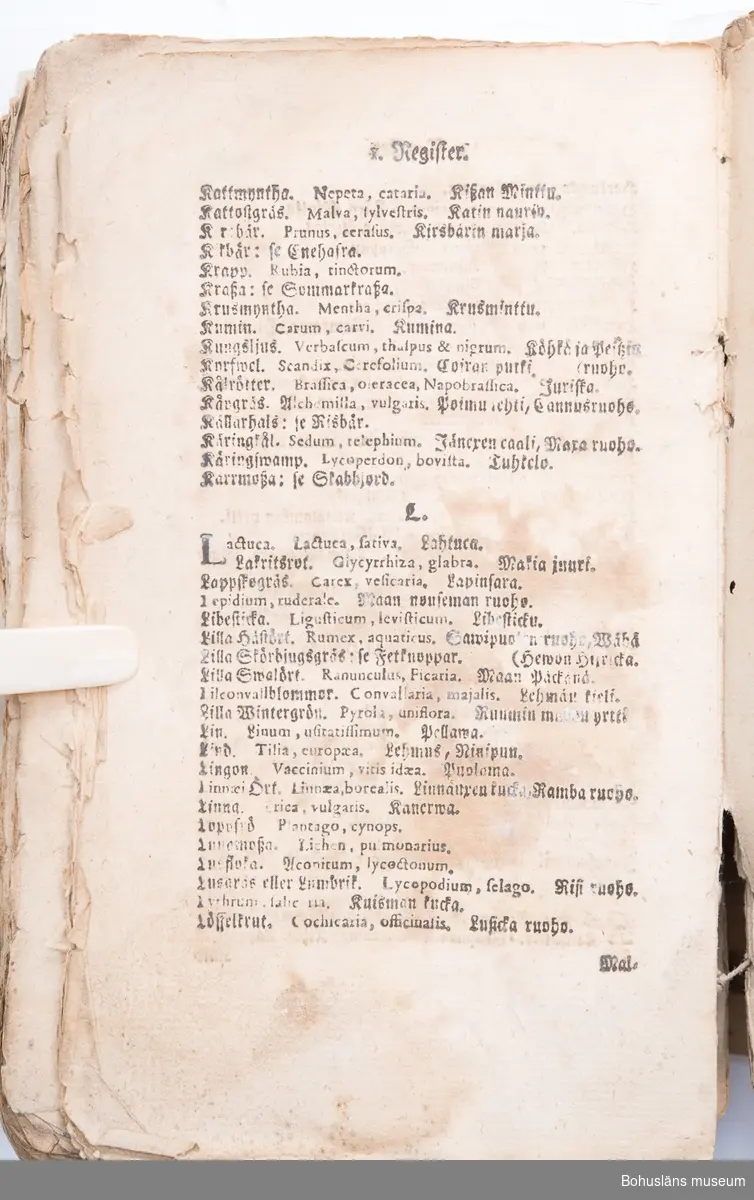 1. Register.
Kattmyntha. Nepeta, cataria. Kißan Minttu.
Kattostgräs. Malva, sylvestris. Katin nauris.
bär. Prunus, cerasus. Kirsbärin marja.
bär: se Enehafra.
Krapp. Rubia, tinctorum.
Kraßa: se Sommarkraßa.
Krusmyntha. Mentha, crispa. Krusminttu.
Kumin. Carum, carvi. Kumina.
Kungsljus. Verbascum, thaspus & nigrum. Köhkä ja
Korfwel. Scandix, Cerefolium. Coiran putki (ruoho.
Kålrötter. Brassica, oleracea, Napobrassica. Juriska.
Kårgräs. Alchemilla, vulgaris. Poimulehti, Cannusruoho.
Källarhals: se Risbär.
Käringkål. Sedum, telephium. Jänexen caali, Maxa ruoho.
Käringswamp. Lycoperdon, bovista. Tuhkelo.
Kärrmoßa: se Skabbjord.
L.
Lactuca. Lactuca, sativa. Lahtuca.
Lakritsrot. Glycyrrhiza, glabra. Makia juuri.
Lappskogräs. Carex, vesicaria. Lapinsara.
Lepidium, ruderale. Maan nouseman ruoho.
Libesticka. Ligusticum, levisticum. Libesticku.
Lilla Hästört. Rumex, aquaticus. ruoho, Wähä
Lilla Skörbjugsgräs: se Fetknoppar. (Hewon
Lilla Swalört. Ranunculus, Ficaria. Maan Päckänä.
Lilconvallblommor. Convallaria, majalis. Lehmän kieli.
Lilla Wintergrön. Pyrola, uniflora. Ruumin
Lin. Linum, usitatissimum. Pellawa.
Lind. Tilia, europæa. Lehmus, Niinipuu.
Lingon. Vaccinium, vitis idæa. Puoloma.
Linnæi Ört. Linnæa, borealis. Linnäuxen kucka, Ramba ruoho.
Linng. Erica, vulgaris. Kanerwa.
Loppfrö Plantago, cynops.
Lungmoßa. Lichen, pulmonarius.
Lusfloka. Aconitum, lycoctonum.
Lusgräs eller Lumbrik. Lycopodium, selago. Risi ruoho.
Lythrum, salicaria. Kuisman kucka.
Lösselkrut. Cochlearia, officinalis. Lusicka ruoho.
Mal-
Bohusläns museum